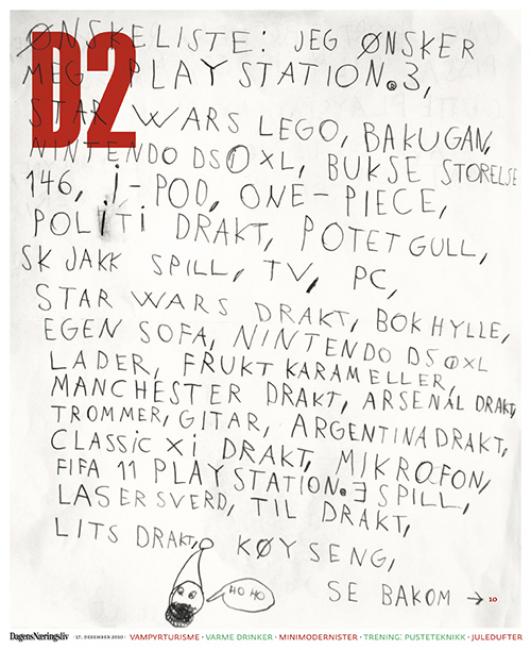 D2
ØNSKELISTE: JEG ØNSKER
MEG PLAYSTATION.3,
STAR WARS LEGO, BAKUGAN,
NINTENDO DSO XL, BUKSE STORELSE
146, i-POD, ONE-PIECE,
POLiTi DRAKT, POTETGULL,
SKJAKK SPILL, TV, PC,
STAR WARS DRAKT, BOKHYLLE,
EGEN SOFA, NINTENDO DSOXL
LADER, FRUKTKARAMELLER,
MANCHESTER DRAKT, ARSENAL DRAKT,
TROMMER, GITAR, ARGENTINADRAKT,
CLASSiC Xi DRAKT, MIKROFON,
FIFA 11 PLAYSTATION.3 SPILL,
LASERSVERD, TIL DRAKT,
LITS DRAKT, KØYSENG,
HO HO
SE BAKOM → 20
DagensNæringsliv · 17. DESEMBER 2010 · VAMPYRTURISME · VARME DRINKER · MINIMODERNISTER · TRENING: PUSTETEKNIKK · JULEDUFTER